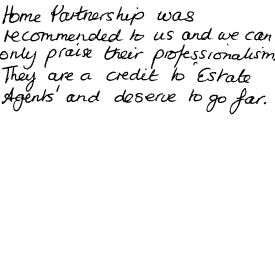 Home Partnership was
recommended to us and we can
only praise their professionalism.
They are a credit to 'Estate
Agents' and deserve to go far.